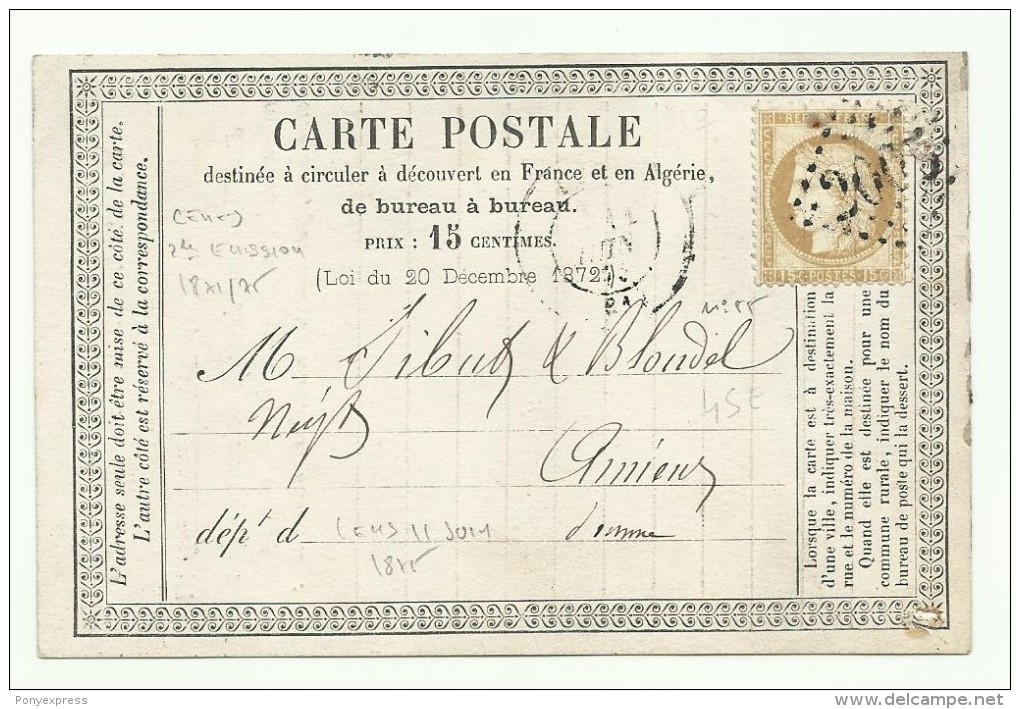 CARTE POSTALE
destinée à circuler à découvert en France et en Algérie,
de bureau à bureau.
PRIX : 15 CENTIMES.
(Loi du 20 Décembre 1872)
REPUB FRANC
15 C POSTES 15 C
L'adresse seule doit être mise de ce côté de la carte.
L'autre côté est réservé à la correspondance.
2me EMISSION
1875
M Blondel
Négts
Amiens
dépt d Somme
LENS 11 JUIN
1875
45E
Lorsque la carte est à destination
d'une ville, indiquer très-exactement la
rue et le numéro de la maison.
Quand elle est destinée pour une
commune rurale, indiquer le nom du
bureau de poste qui la dessert.
Ponyexpress
www.delcampe.net